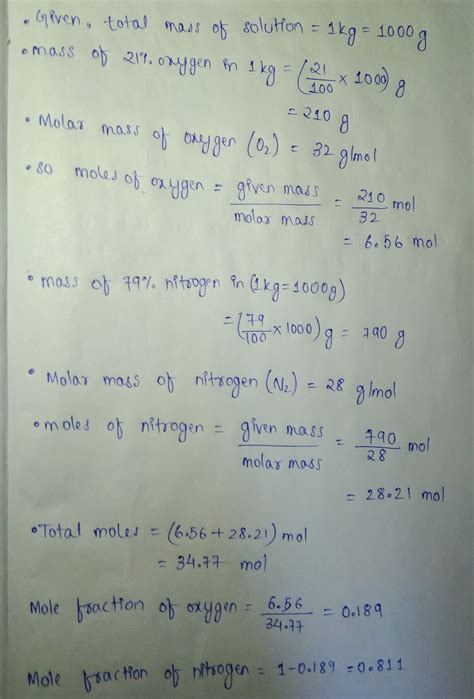 • Given, total mass of solution = 1kg = 1000 g
• mass of 21% oxygen in 1kg = (21/100 × 1000) g
= 210 g
• Molar mass of oxygen (O₂) = 32 g/mol
• so moles of oxygen = given mass / molar mass = 210/32 mol
= 6.56 mol
• mass of 79% nitrogen in (1kg = 1000g)
= (79/100 × 1000) g = 790 g
• Molar mass of nitrogen (N₂) = 28 g/mol
• moles of nitrogen = given mass / molar mass = 790/28 mol
= 28.21 mol
• Total moles = (6.56 + 28.21) mol
= 34.77 mol
Mole fraction of oxygen = 6.56/34.77 = 0.189
Mole fraction of nitrogen = 1-0.189 = 0.811